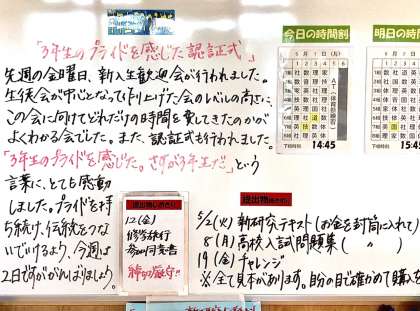 「3年生のプライドを感じた認証式」
先週の金曜日、新入生歓迎会が行われました。
生徒会が中心となって作り上げた会のレベルの高さに、
この会に向けてどれだけの時間を費してきたのかが
よくわかる会でした。また、認証式も行われました。
「3年生のプライドを感じた。さすが3年生だ」という
言葉に、とても感動
しました。プライドを持
ち続け、伝統をつな
いでいけるよう、今週は
2日ですががんばりましょう。
提出物
12(金)
修学旅行
参加同意書
締切厳守!!
今日の時間割
5月1日(月)
14:45
明日の時間割
提出物
5/2(火) 新研究テキスト(お金を封筒に入れて)
8(月) 高校入試問題集( 〃 )
19(金) チャレンジ
※全て見本があります。自分の目で確かめて購入を